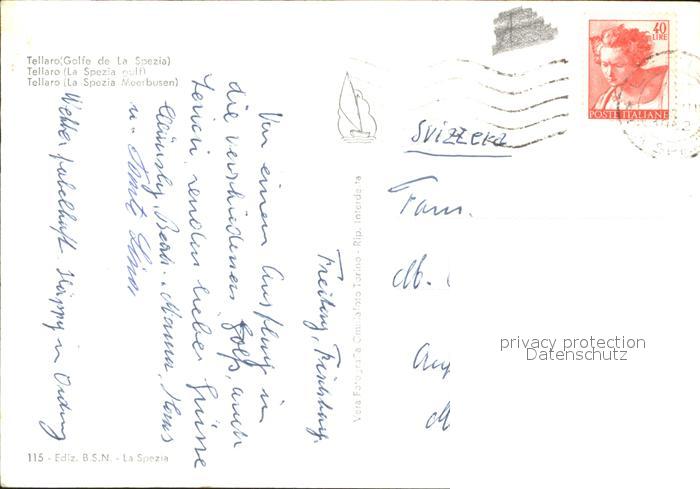 Tellaro(Golfe de La Spezia)
Tellaro (La Spezia gulf)
Tellaro (La Spezia Meerbusen)
40
LIRE
POSTE ITALIANE
SVIZZERA
Fam.
M.
Freitag,
Von einem Ausflug in
die verschiedenen Golfs, auch
Lerici, senden liebe Grüsse
Mama, Hans
u. Tante
Wetter fabelhaft. Häppy in Ordnung
Vera Fotografia Omniafoto Torino - Rip. Interdetta
privacy protection
Datenschutz
115 - Ediz. B.S.N. - La Spezia